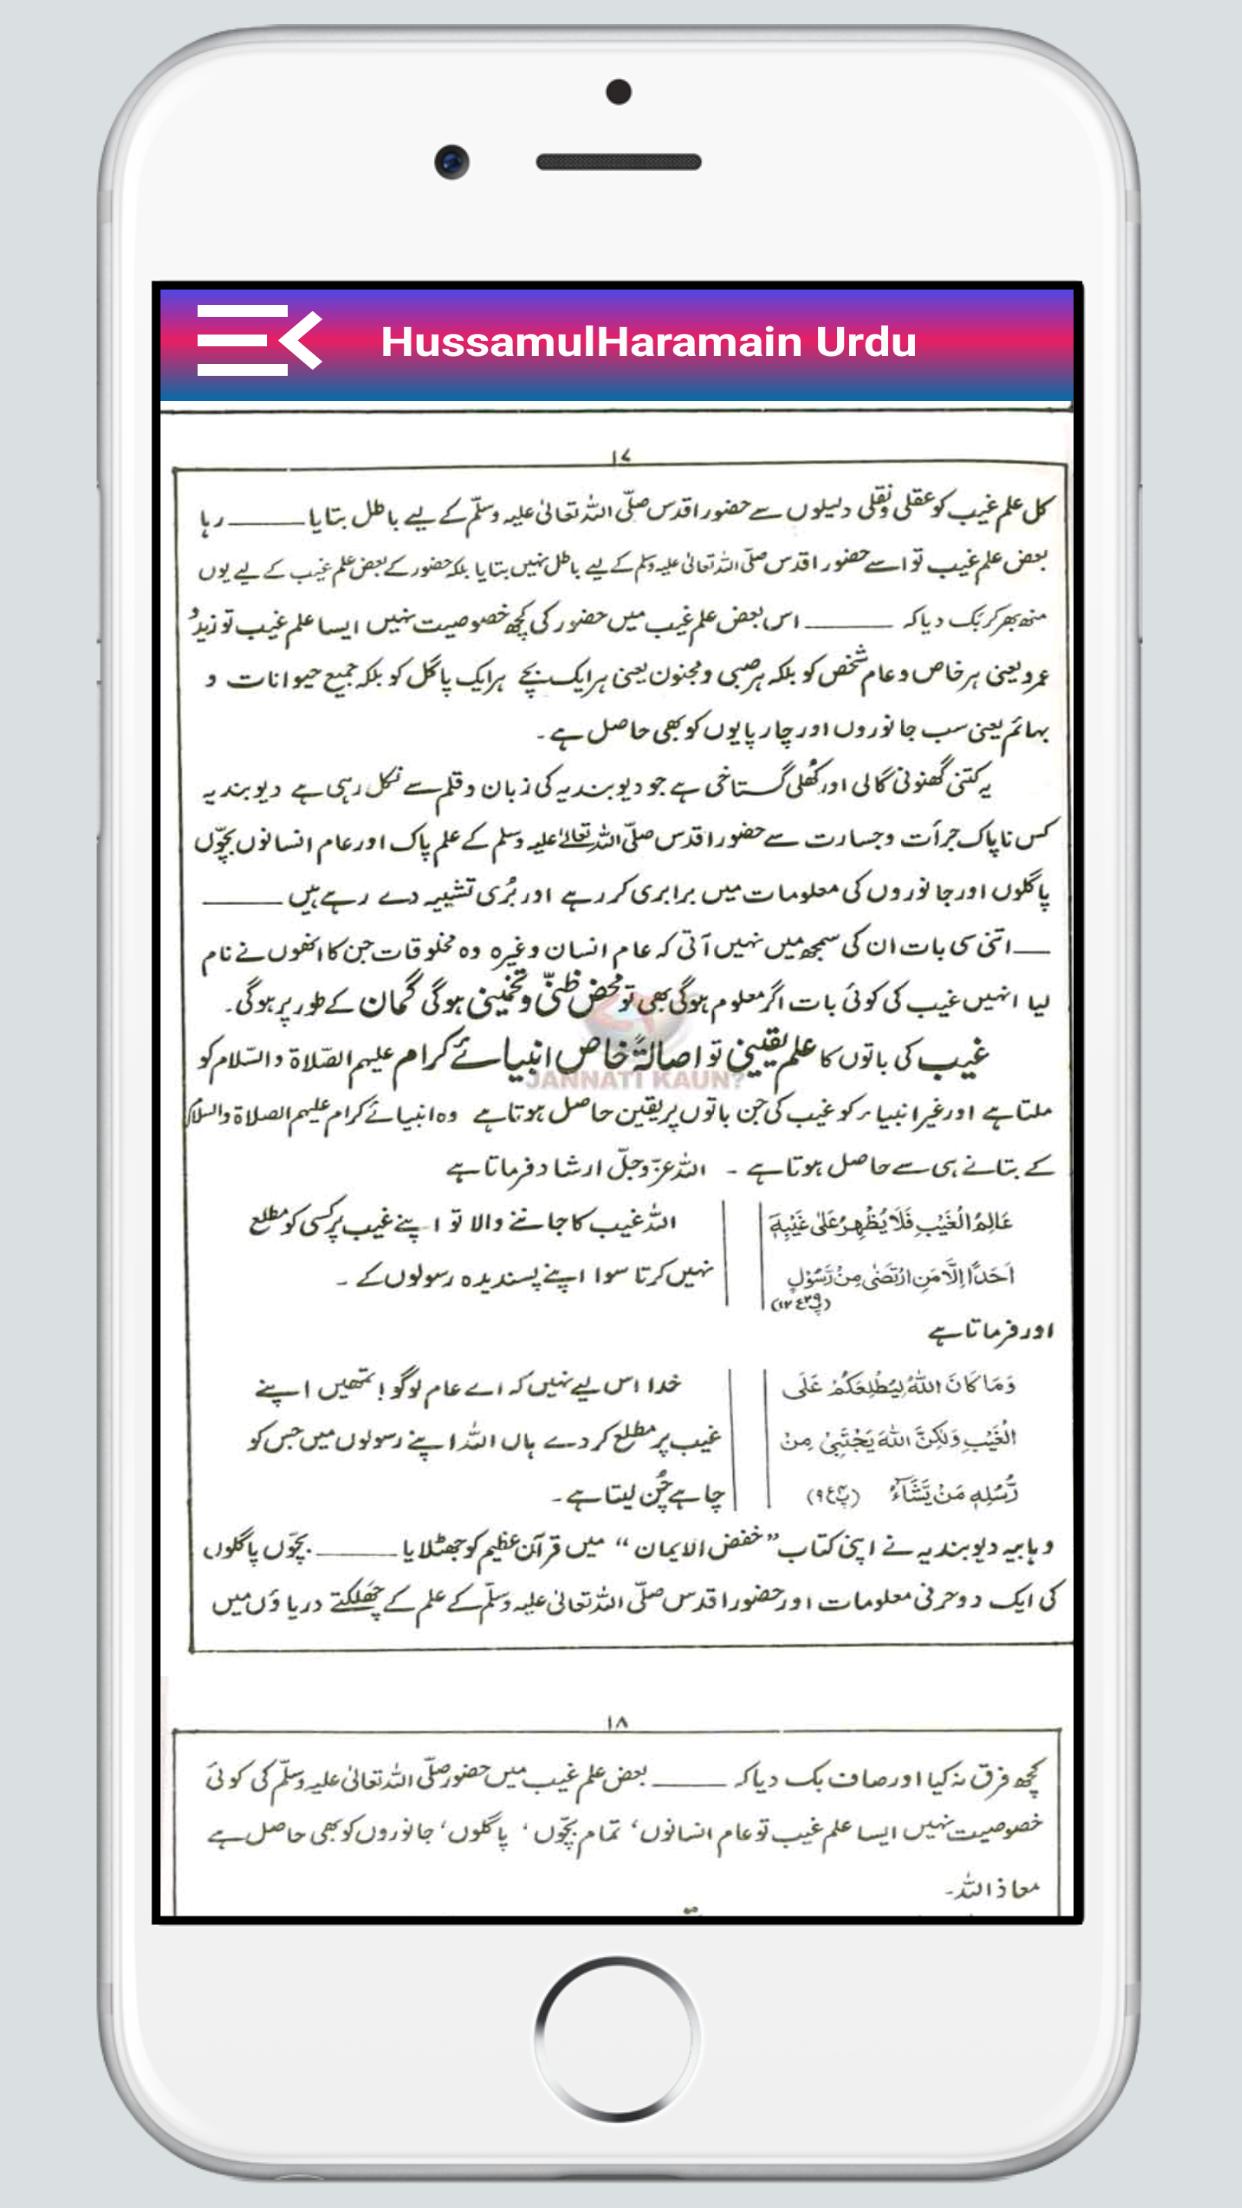 HussamulHaramain Urdu
۱۷
کل علم غیب کو عقلی و نقلی دلیلوں سے حضور اقدس صلّی اللہ تعالیٰ علیہ وسلّم کے لیے باطل بتایا ــــــ رہا
بعض علم غیب تو اسے حضور اقدس صلّی اللہ تعالیٰ علیہ وسلم کے لیے باطل نہیں بتایا بلکہ حضور کے بعض علم غیب کے لیے یوں
منھ بھر کر بک دیا کہ ــــــ اس بعض علم غیب میں حضور کی کچھ خصوصیت نہیں ایسا علم غیب تو زید و
عمرو یعنی ہر خاص و عام شخص کو بلکہ ہر صبی و مجنون یعنی ہر ایک بچے ہر ایک پاگل کو بلکہ جمیع حیوانات و
بہائم یعنی سب جانوروں اور چارپایوں کو بھی حاصل ہے۔
یہ کتنی گھنونی گالی اور کھُلی گستاخی ہے جو دیوبندیہ کی زبان و قلم سے نکل رہی ہے دیوبندیہ
کس ناپاک جرأت و جسارت سے حضور اقدس صلّی اللہ تعالےٰ علیہ وسلم کے علم پاک اور عام انسانوں بچّوں
پاگلوں اور جانوروں کی معلومات میں برابری کر رہے اور بُری تشبیہ دے رہے ہیں ــــــ
ــــ اتنی سی بات ان کی سمجھ میں نہیں آتی کہ عام انسان وغیرہ وہ مخلوقات جن کا انھوں نے نام
لیا انہیں غیب کی کوئی بات اگر معلوم ہوگی بھی تو محض ظنّی و تخمینی ہوگی گمان کے طور پر ہوگی۔
غیب کی باتوں کا علم یقینی تو اصالۃً خاص انبیائے کرام علیہم الصّلاۃ والسّلام کو
JANNATI KAUN?
ملتا ہے اور غیر انبیاء کو غیب کی جن باتوں پر یقین حاصل ہوتا ہے وہ انبیائے کرام علیہم الصلاۃ والسلام
کے بتانے ہی سے حاصل ہوتا ہے ۔ اللہ عزّوجلّ ارشاد فرماتا ہے
عَالِمُ الْغَیْبِ فَلَا یُظْهِرُ عَلٰی غَیْبِهٖ
اَحَدًا اِلَّا مَنِ ارْتَضٰی مِنْ رَّسُوْلٍ
(پ۲۹ع۱۲)
اللہ غیب کا جاننے والا تو اپنے غیب پر کسی کو مطلع
نہیں کرتا سوا اپنے پسندیدہ رسولوں کے ۔
اور فرماتا ہے
وَمَا کَانَ اللّٰهُ لِیُطْلِعَکُمْ عَلَی
الْغَیْبِ وَلٰکِنَّ اللّٰهَ یَجْتَبِیْ مِنْ
رُّسُلِهٖ مَنْ یَّشَآءُ (پ۴ع۹)
خدا اس لیے نہیں کہ اے عام لوگو! تمھیں اپنے
غیب پر مطلع کردے ہاں اللہ اپنے رسولوں میں جس کو
چاہے چُن لیتا ہے۔
وہابیہ دیوبندیہ نے اپنی کتاب ”خفض الایمان“ میں قرآن عظیم کو جھٹلایا ــــــ بچّوں پاگلوں
کی ایک دو حرفی معلومات اور حضور اقدس صلّی اللہ تعالیٰ علیہ وسلّم کے علم کے چھلکتے دریاؤں میں
۱۸
کچھ فرق نہ کیا اور صاف بک دیا کہ ــــــ بعض علم غیب میں حضور صلّی اللہ تعالیٰ علیہ وسلّم کی کوئی
خصوصیت نہیں ایسا علم غیب تو عام انسانوں، تمام بچّوں، پاگلوں، جانوروں کو بھی حاصل ہے
معاذ اللہ۔